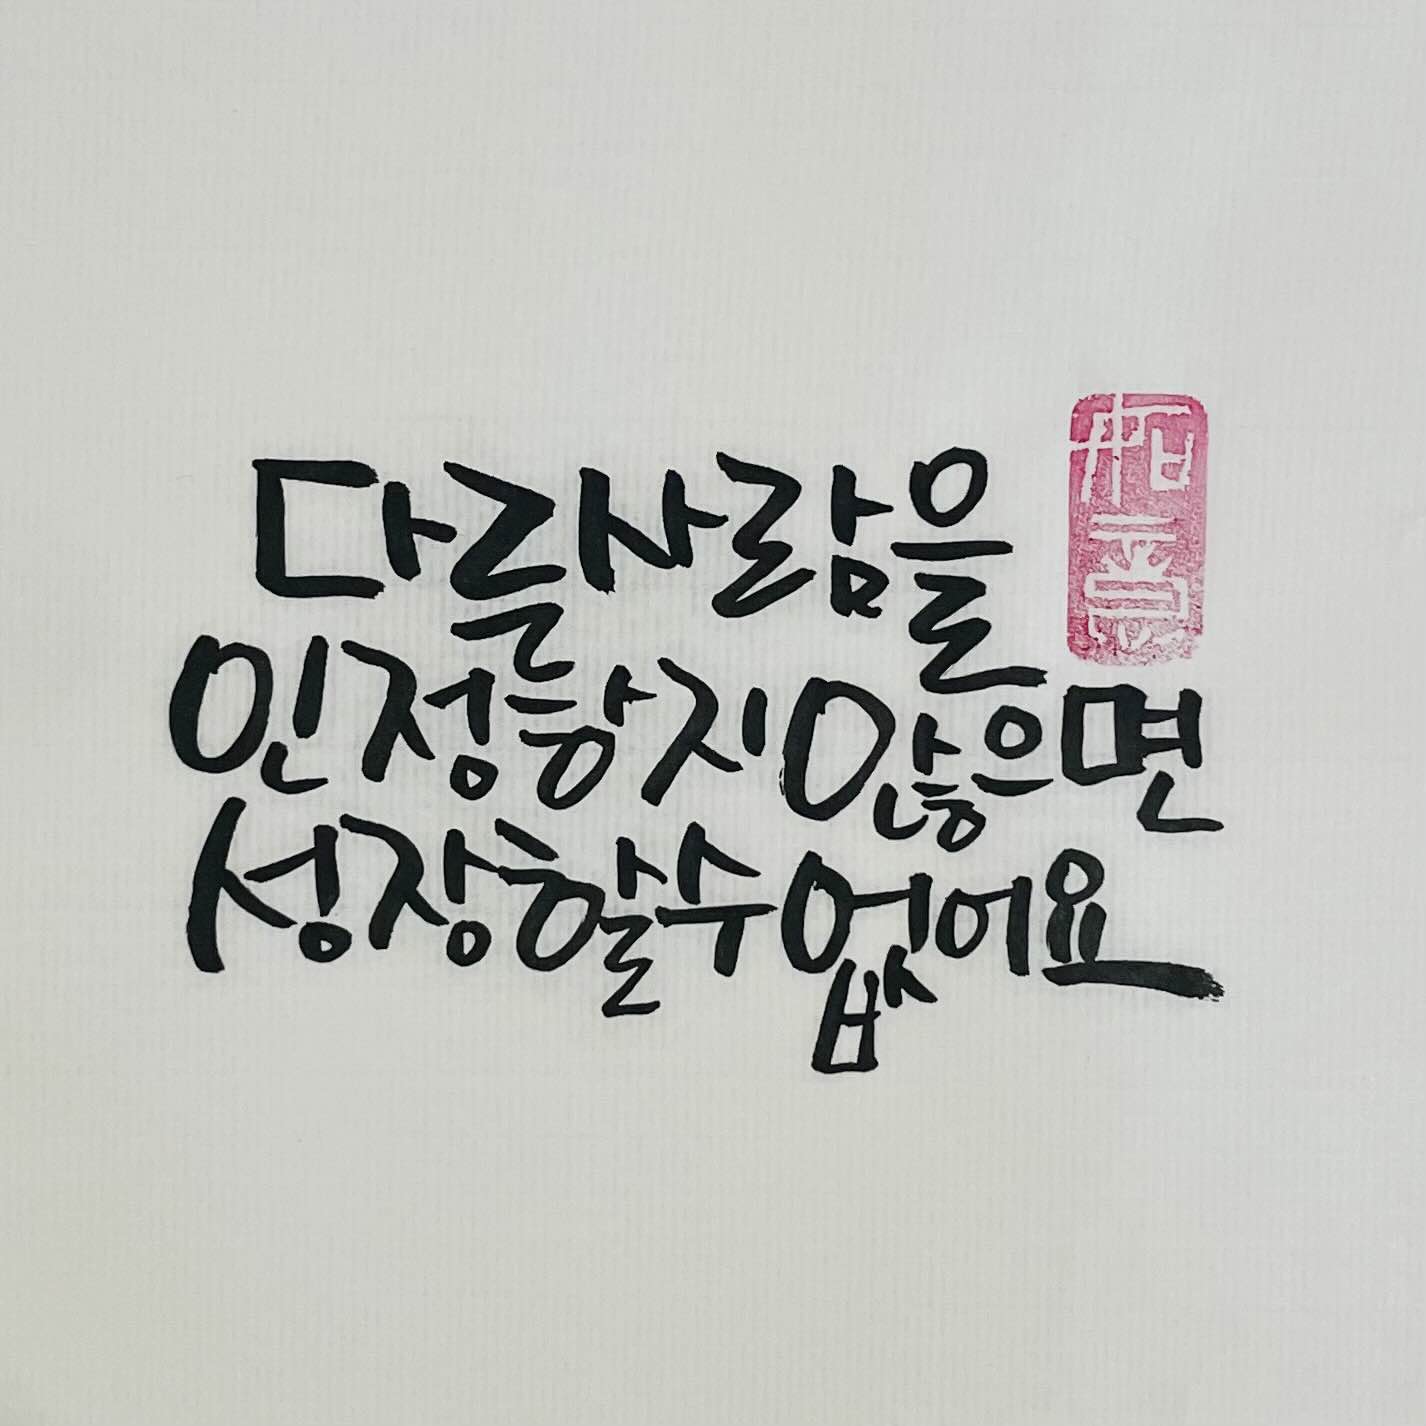 다른사람을
인정하지않으면
성장할수없어요